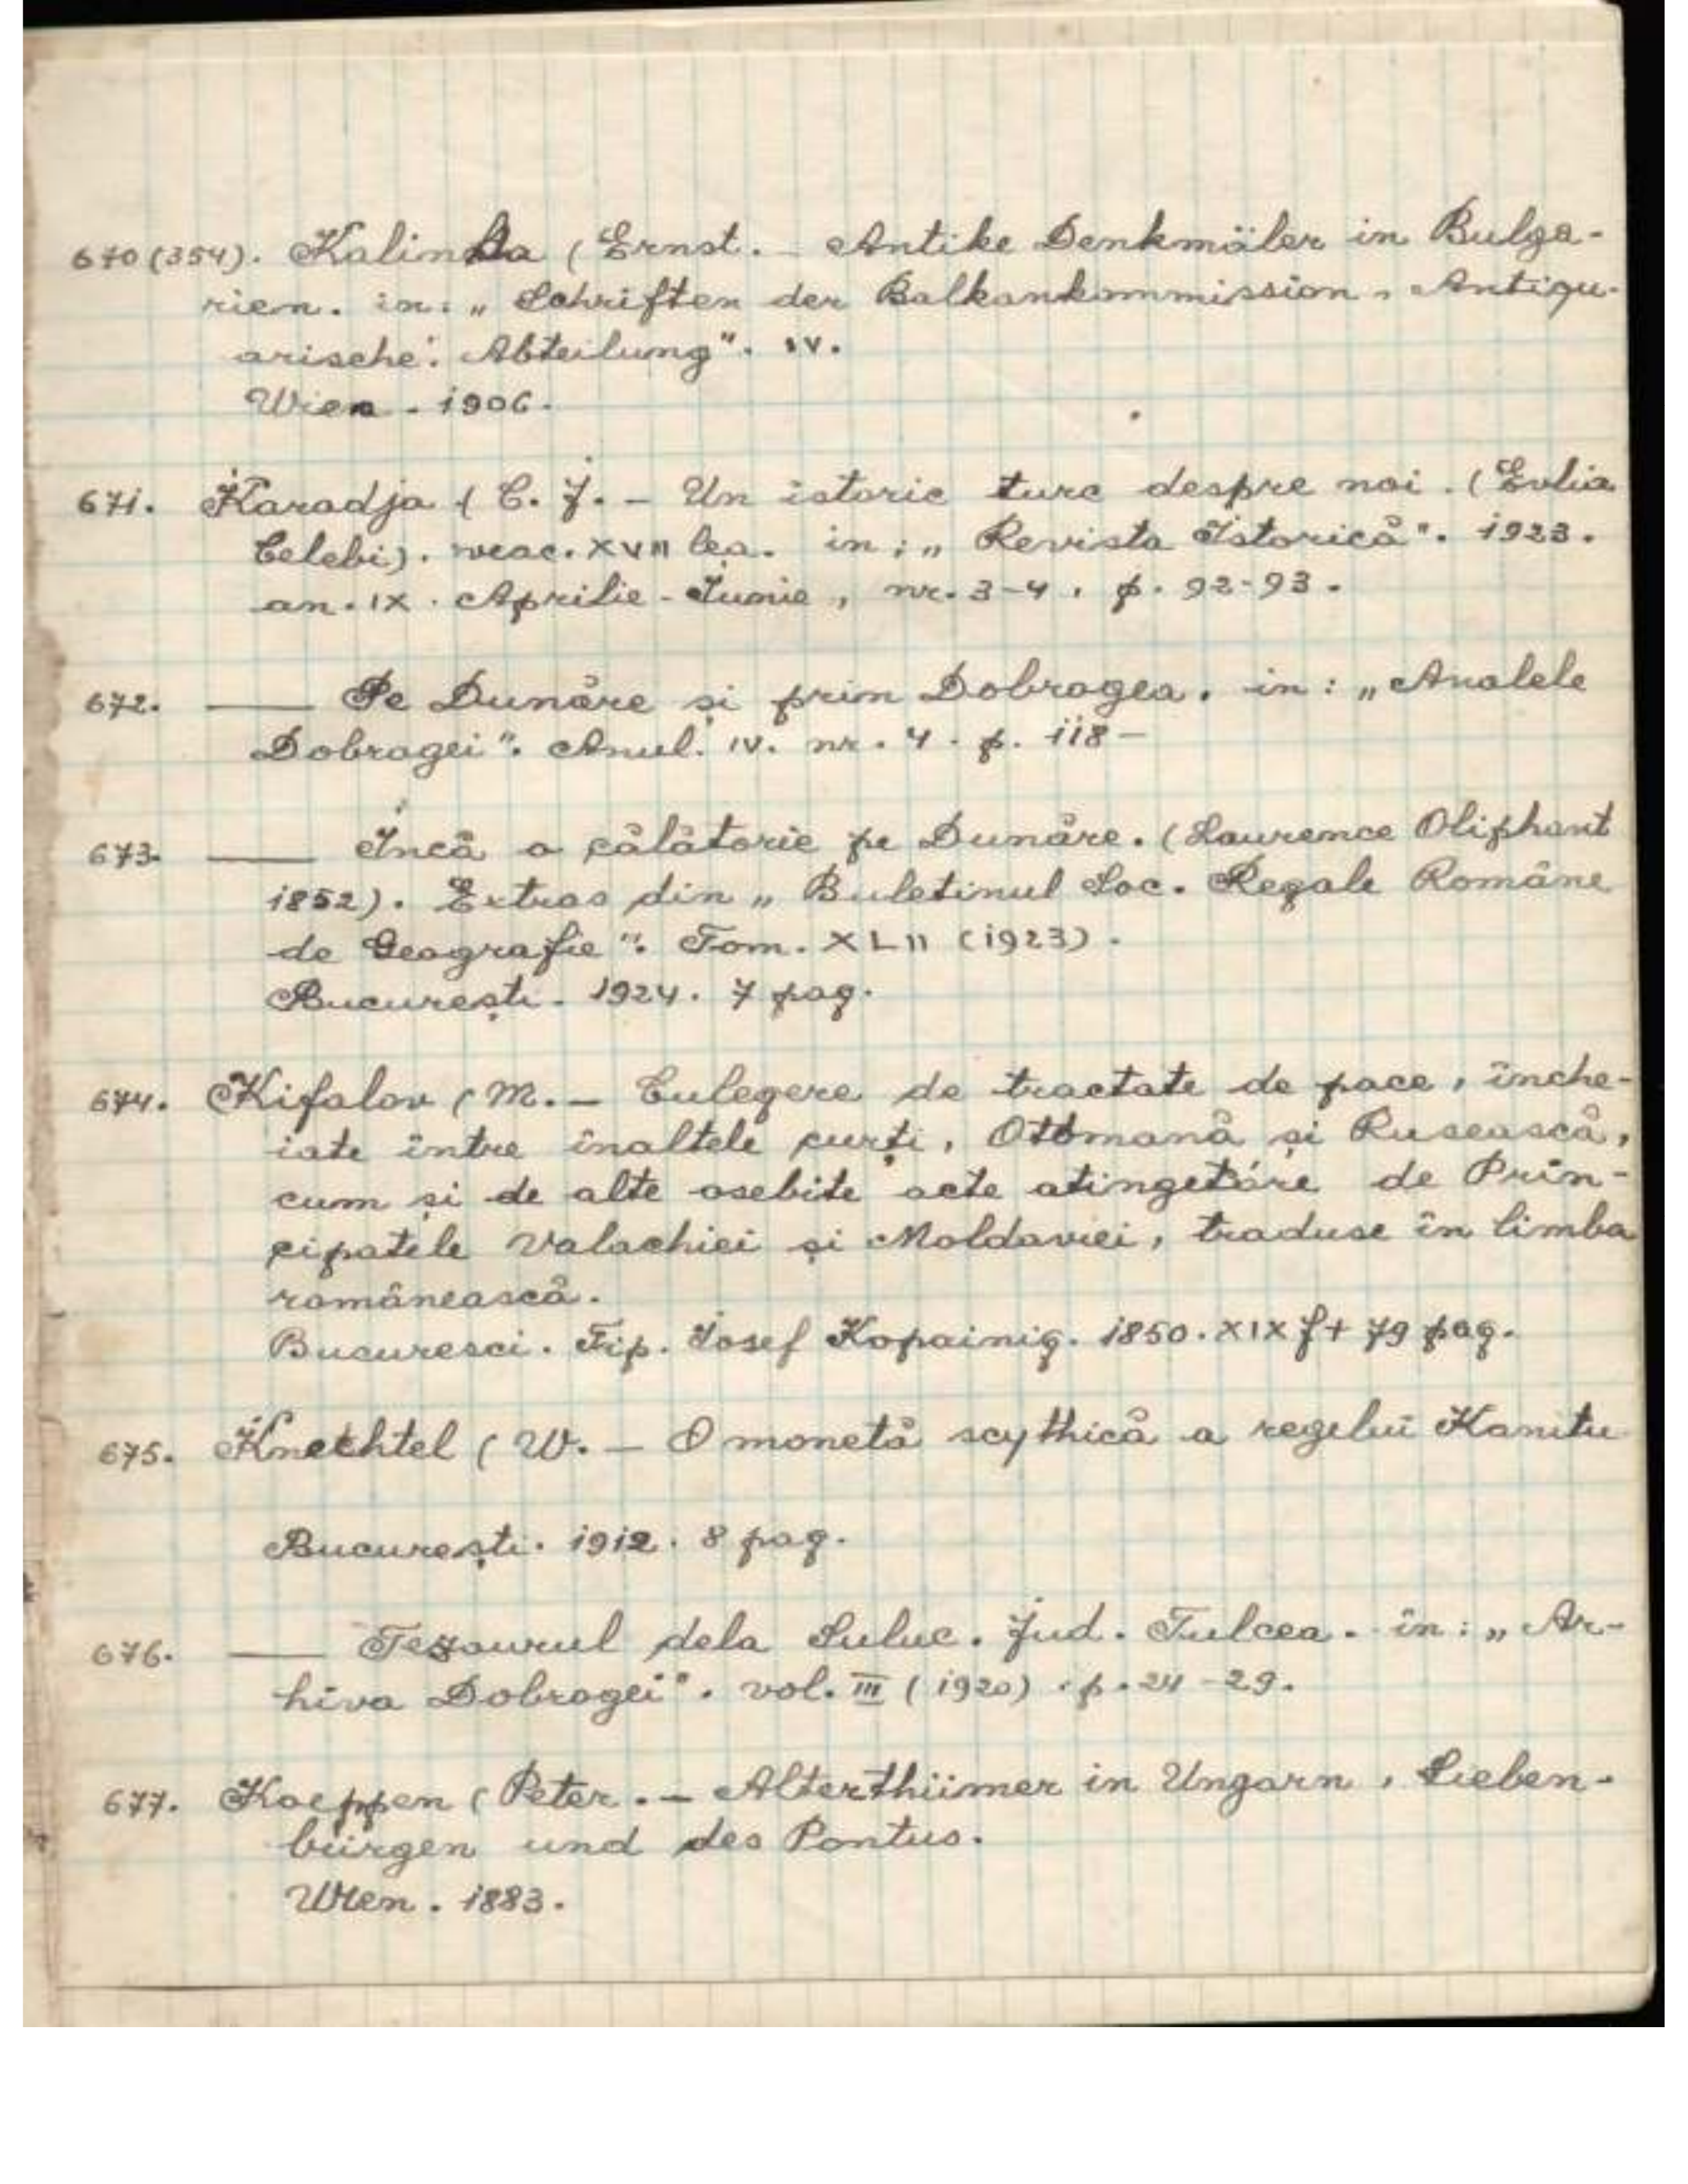 670 (354). Kalinka (Ernst. – Antike Denkmäler in Bulga-
rien. in: „Schriften der Balkankommission. Antiqu-
arische. Abteilung". IV.
Wien - 1906.
671. Karadja (C. J. – Un istoric turc despre noi. (Evlia
Celebi). veac. XVII lea. in: „Revista Istorică". 1923.
an. IX. Aprilie - Iunie, nr. 3-4, p. 92-93.
672. —— Pe Dunăre și prin Dobrogea. in: „Analele
Dobrogei". Anul. IV. nr. 4. p. 118 –
673. —— Încă o călătorie pe Dunăre. (Laurence Oliphant
1852). Extras din „Buletinul Soc. Regale Române
de Geografie". Tom. XLII (1923).
București. 1924. 7 pag.
674. Kifalov (M. – Culegere de tractate de pace, înche-
iate între înaltele curți, Ottomană și Rusească,
cum și de alte osebite acte atingetóre de Prin-
cipatele Valachiei și Moldaviei, traduse în limba
românească.
Bucuresci. Tip. Iosef Kopainig. 1850. XIX f + 79 pag.
675. Knechtel (W. – O monetă scythică a regelui Kanitu
București. 1912. 8 pag.
676. —— Tezaurul dela Suluc. Jud. Tulcea. în: „Ar-
hiva Dobrogei". vol. III (1920). p. 24-29.
677. Koeppen (Peter. – Alterthümer in Ungarn, Sieben-
bürgen und des Pontus.
Wien. 1883.